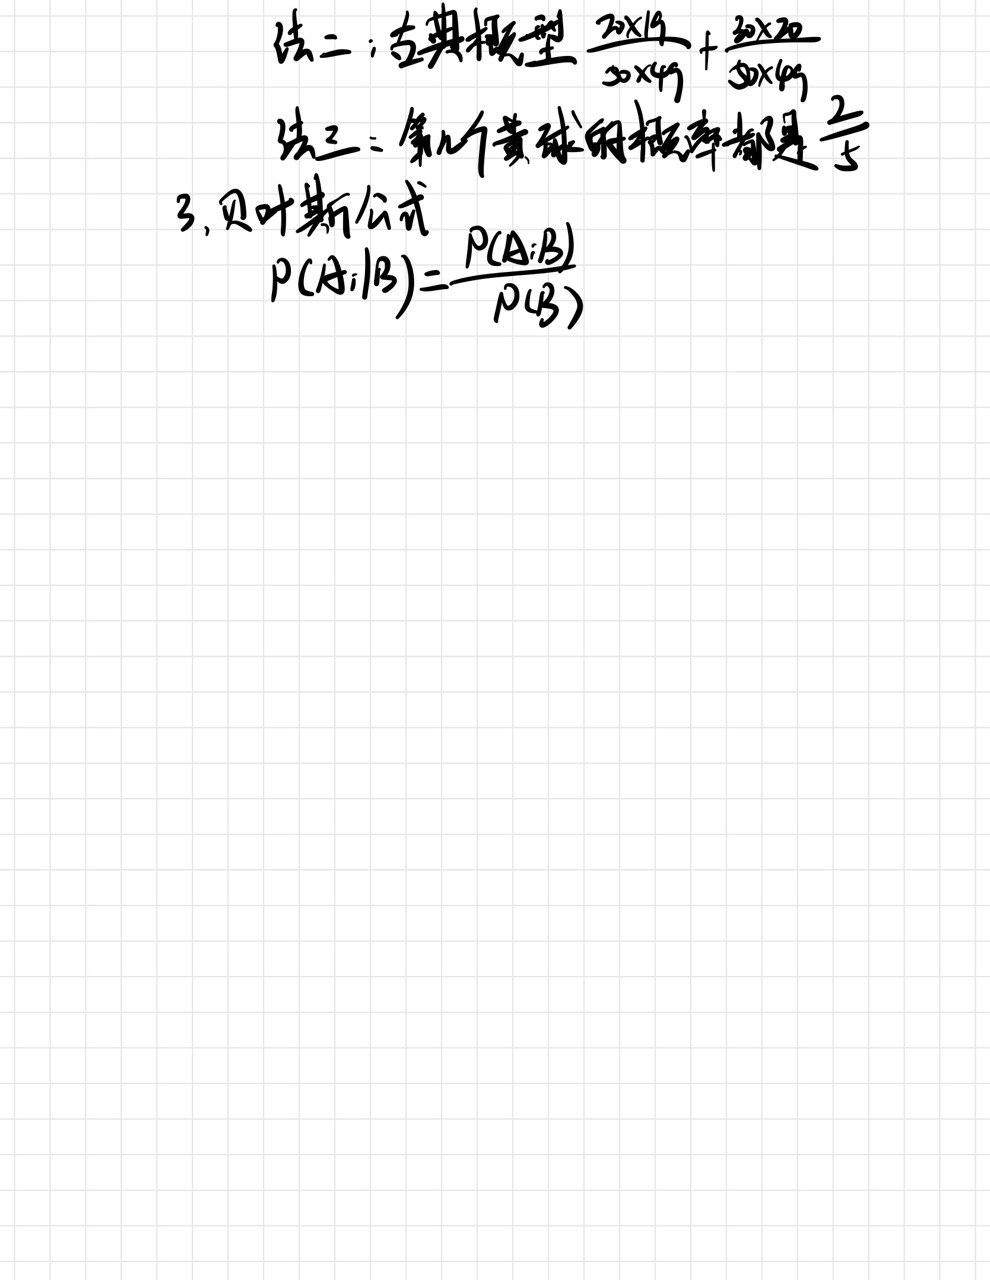 法二:古典概型 20×19/50×49 + 30×20/50×49
法三:第几个黄球的概率都是 2/5
3.贝叶斯公式
P(Ai|B)=P(AiB)/P(B)